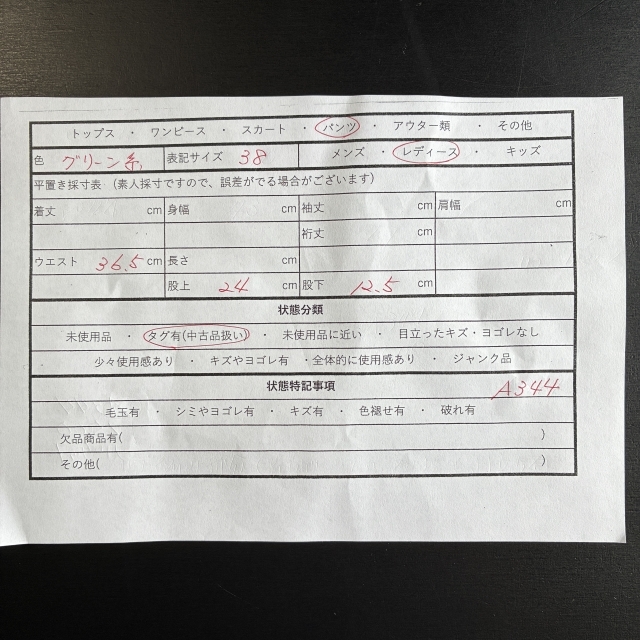 トップス ・ ワンピース ・ スカート ・ パンツ ・ アウター類 ・ その他
色 グリーン系 表記サイズ 38 メンズ ・ レディース ・ キッズ
平置き採寸表 （素人採寸ですので、誤差がでる場合がございます）
着丈 cm 身幅 cm 袖丈 cm 肩幅 cm
裄丈 cm
ウエスト 36.5 cm 長さ cm
股上 24 cm 股下 12.5 cm
状態分類
未使用品 ・ タグ有(中古品扱い) ・ 未使用品に近い ・ 目立ったキズ・ヨゴレなし
少々使用感あり ・ キズやヨゴレ有 ・全体的に使用感あり ・ ジャンク品
状態特記事項 A344
毛玉有 ・ シミやヨゴレ有 ・ キズ有 ・ 色褪せ有 ・ 破れ有
欠品商品有( )
その他( )